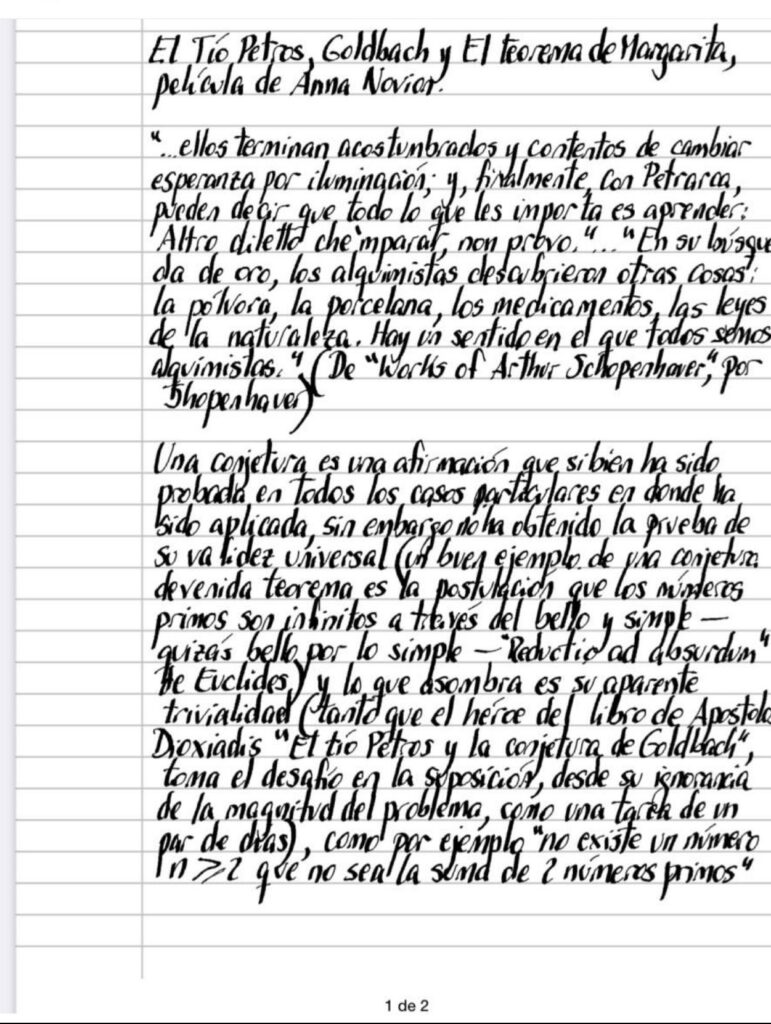 El Tío Petros, Goldbach y El teorema de Margarita,
película de Anna Novior.
"...ellos terminan acostunbrados y contentos de cambiar
esperanza por iluminación; y, finalmente, con Petrarca,
pueden decir que todo lo que les importa es aprender:
Altro diletto che 'mparar, non provo."..."En su búsque
da de oro, los alquimistas descubrieron otras cosas:
la pólvora, la porcelana, los medicamentos, las leyes
de la naturaleza. Hay un sentido en el que todos somos
alquimistas." (De "Works of Arthur Schopenhaver", por
Shopenhaver)
Una conjetura es una afirmación que si bien ha sido
probada en todos los casos particulares en donde ha
sido aplicada, sin embargo no ha obtenido la prueba de
su validez universal (un buen ejemplo de una conjetura
devenida teorema es la postulación que los números
primos son infinitos a través del bello y simple —
quizás bello por lo simple — "Reductio ad absurdum"
de Euclides) y lo que asombra es su aparente
trivialidad (tanto que el héroe del libro de Apostolo
Dioxiadis "El tío Petros y la conjetura de Goldbach",
toma el desafío en la suposición, desde su ignorancia
de la magnitud del problema, como una tarea de un
par de días), como por ejemplo "no existe un número
n ⩾ 2 que no sea la suma de 2 números primos"
1 de 2